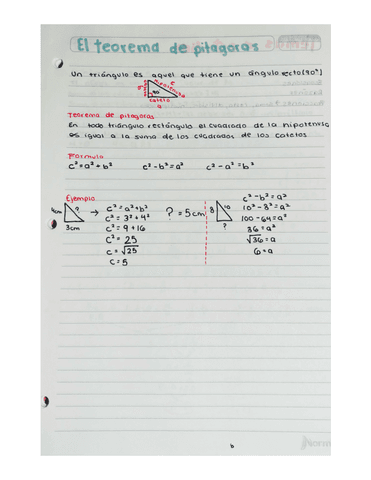 El teorema de pitagoras
Un triángulo es aquel que tiene un ángulo recto (90°)
c
hipotenusa
90°
cateto
a
Teorema de pitagoras
En todo triángulo rectángulo el cuadrado de la hipotenusa
es igual a la suma de los cuadrados de los catetos
Formula
c² = a² + b²   c² - b² = a²   c² - a² = b²
Ejemplo
4cm ? 3cm
→ c² = a² + b²   ? = 5cm
c² = 3² + 4²
c² = 9 + 16
c² = 25
c = √25
c = 5
8 10 ?
c² - b² = a²
10² - 8² = a²
100 - 64 = a²
36 = a²
√36 = a
6 = a
Norm